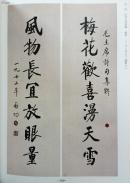 梅花歡喜漫天雪
毛主席詩句集聯
風物長宜放眼量
一九七六年 啟功